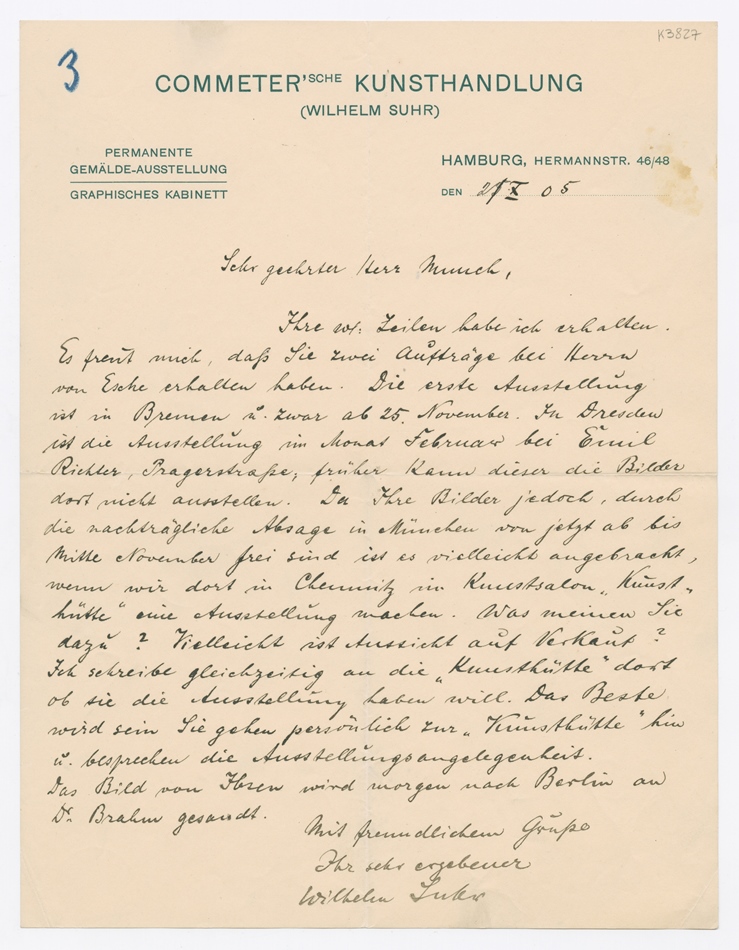 K3827
3
COMMETER'SCHE KUNSTHANDLUNG
(WILHELM SUHR)
PERMANENTE
GEMÄLDE-AUSSTELLUNG
GRAPHISCHES KABINETT
HAMBURG, HERMANNSTR. 46/48
DEN X 05
Sehr geehrter Herr Munch,
Ihre w: Zeilen habe ich erhalten.
Es freut mich, daß Sie zwei Aufträge bei Herrn
von Esche erhalten haben. Die erste Ausstellung
ist in Bremen u. zwar ab 25. November. In Dresden
ist die Ausstellung im Monat Februar bei Emil
Richter, Pragerstraße; früher kann dieser die Bilder
dort nicht ausstellen. Da Ihre Bilder jedoch, durch
die nachträgliche Absage in München von jetzt ab bis
Mitte November frei sind ist es vielleicht angebracht,
wenn wir dort in Chemnitz im Kunstsalon „Kunst-
hütte" eine Ausstellung machen. Was meinen Sie
dazu? Vielleicht ist Aussicht auf Verkauf?
Ich schreibe gleichzeitig an die „Kunsthütte" dort
ob sie die Ausstellung haben will. Das Beste
wird sein Sie gehen persönlich zur „Kunsthütte" hin
u. besprechen die Ausstellungsangelegenheit.
Das Bild von Ibsen wird morgen nach Berlin an
Dr. Brahm gesandt.
Mit freundlichem Gruße
Ihr sehr ergebener
Wilhelm Suhr